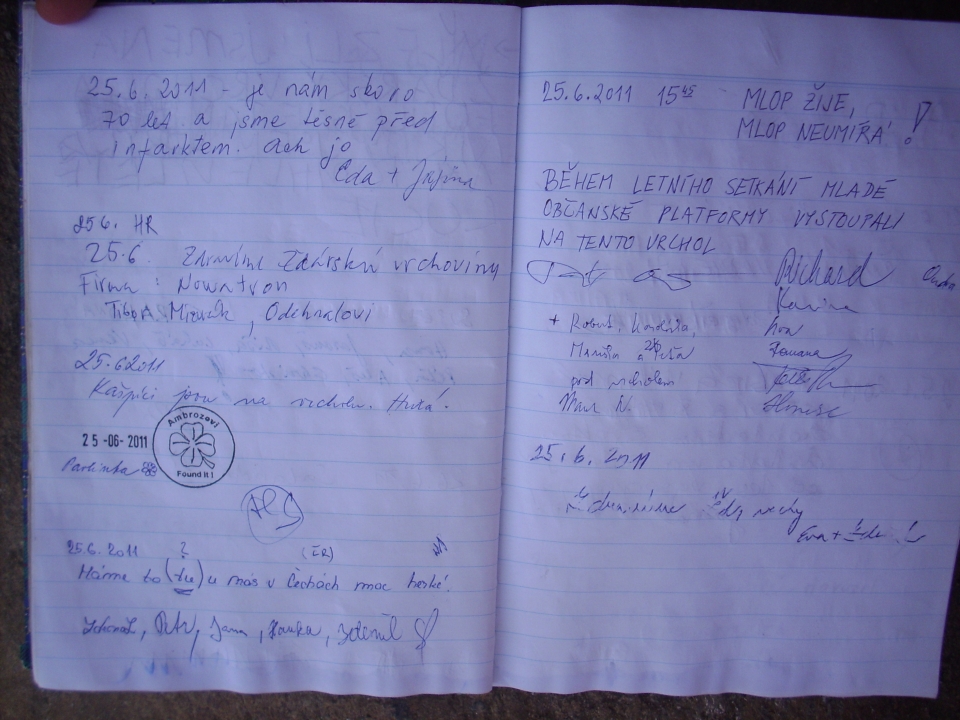 25.6.2011 - je nám skoro
70 let a jsme těsně před
infarktem. Ach jo
Eda + Jiřina
25.6. HR
25.6. Zdravíme Žďárskú vrchovinu
Firma: Nowatron
Odehnalovi
25.6 2011
Kašpíci jsou na vrcholu. Hurá.
Ambrozovi
25-06-2011
Found It!
Pavlinka
25.6.2011 ? (ČR)
Máme to (tu) u nás v Čechách moc hezké!
Petr, Jana, Hanka,
25.6.2011 1545 MLOP ŽIJE,
MLOP NEUMÍRÁ!
BĚHEM LETNÍHO SETKÁNÍ MLADÉ
OBČANSKÉ PLATFORMY VYSTOUPALI
NA TENTO VRCHOL
Richard
Karina
+ Robert,
Romana
pod vrcholem
25.6.2011
Eva +